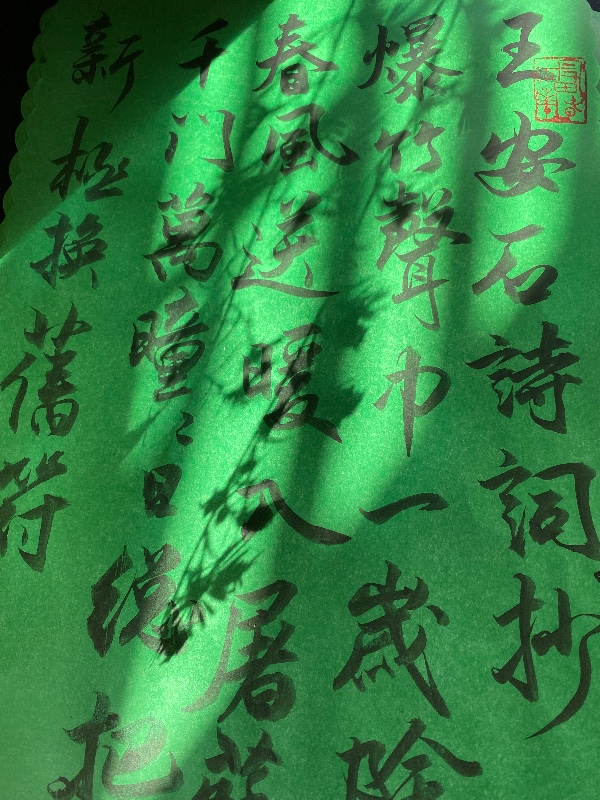 王安石詩詞抄
爆竹聲巾一歲除
春風送暖入屠蘇
千門萬瞳々日總把
新極換舊符